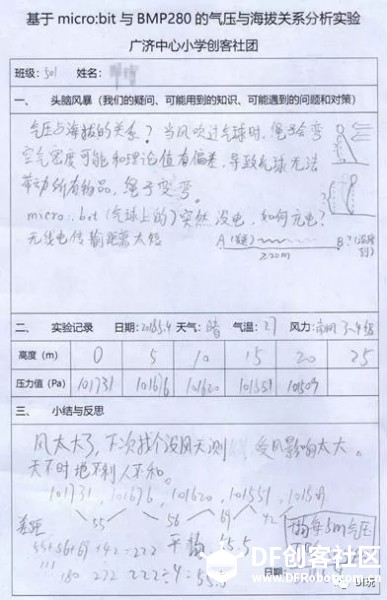 基于 micro:bit 与 BMP280 的气压与海拔关系分析实验
广济中心小学创客社团
班级: 501 姓名:
一、 头脑风暴（我们的疑问、可能用到的知识、可能遇到的问题和对策）
气压与海拔的关系? 当风吹过气球时, 绳子会弯
空气密度可能和理论值有偏差, 导致气球无法
带动所有物品, 绳子变弯。
micro:bit (气球上的) 突然没电, 如何充电?
无线电传输距离太短
A B?
222m
二、 实验记录 日期: 2018.5.4 天气: 晴 气温: 27 风力: 南风 3~4级
高度（m） 0 5 10 15 20 25
压力值（Pa） 101731 101676 101620 101551 101509
三、 小结与反思
风太大了, 下次找个没风天测 受风影响太大。
天不时地不利人不和。
101731, 101676, 101620, 101551, 101509
55 56 69 42
差距
55+56+69+42=222 平均 55.5
111
180 222 222÷4=55.5
每5m气压
日期:
DF创客社区
www.DFRobot.com.cn
DI玩